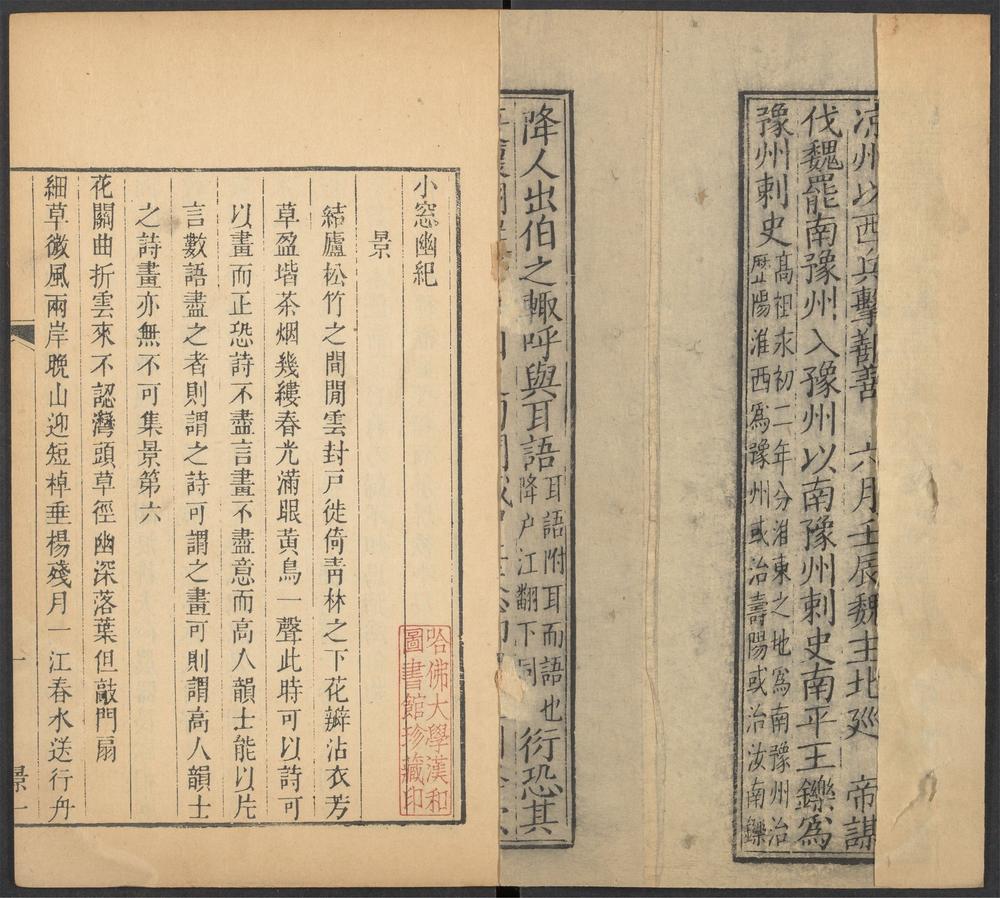 凉州以西兵擊鄯善　六月壬辰魏主北廵　帝謀
伐魏罷南豫州入豫州以南豫州刺史南平王鑠爲
豫州刺史
髙祖永初二年分淮東之地爲南豫州治
歷陽淮西爲豫州或治壽陽或治汝南鑠
降人出伯之輙呼與耳語
耳語附耳而語也
降户江翻下同
衍恐其
小窓幽紀
哈佛大學漢和
圖書館珍藏印
景
結廬松竹之間閒雲封戸徙倚青林之下花瓣沾衣芳
草盈堦茶烟幾縷春光滿眼黄鳥一聲此時可以詩可
以畫而正恐詩不盡言畫不盡意而高人韻士能以片
言數語盡之者則謂之詩可謂之畫可則謂高人韻士
之詩畫亦無不可集景第六
花關曲折雲來不認灣頭草徑幽深落葉但敲門扇
細草微風兩岸晚山迎短棹垂楊殘月一江春水送行舟
一
景一